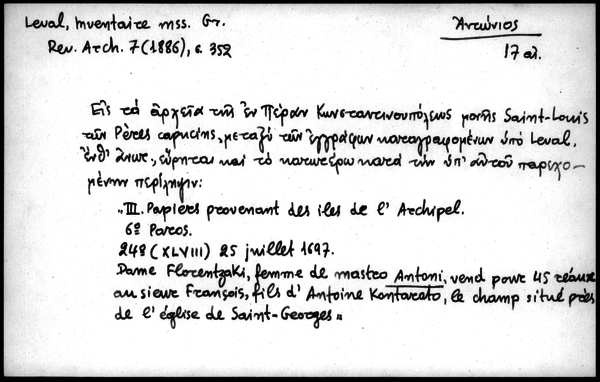 Leval, Inventaire mss. Gr.
Ἀντώνιος
Rev. Arch. 7 (1886), σ. 352
17 αἰ.
Εἰς τὰ ἀρχεῖα τῆς ἐν Πέραν Κωνσταντινουπόλεως μονῆς Saint-Louis
τῶν Pères capucins, μεταξὺ τῶν ἐγγράφων καταγραφομένων ὑπὸ Leval,
ἔνθ' ἀνωτ., εὕρηται καὶ τὸ κατωτέρω κατὰ τὴν ὑπ' αὐτοῦ παρεχο-
μένην περίληψιν:
„III. Papiers provenant des iles de l' Archipel.
6º Paros.
248 (XLVIII) 25 juillet 1697.
Dame Florentzaki, femme de mastro Antoni, vend pour 45 réaux
au sieur François, fils d' Antoine Kontarato, le champ situé près
de l' église de Saint-Georges"